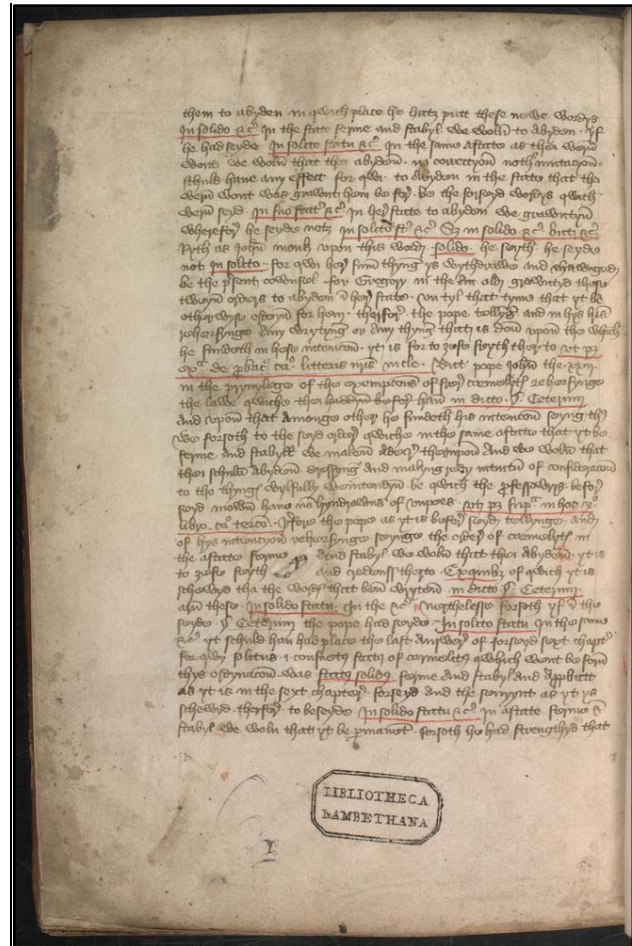 them to abyden in qwich place he hatz putt these nowe wordys
In solido &c in the state ferme and stabyl we woln to abyden. yf
he had seyde In solito statu &c in the same astate as thei wern
wont we woln that thei abyden. no correctyon noth mutacyon
schuld have any effect for qwi. to abyden in the state that thei
wern wont was grawnt hem be for. be the forseyd wordys qwich
wern seyd In suo stat &c in her state to abyden we grawntyn
wherefor he seyde netz in solito st &c Sz in solido &c
Ryth as John monk upon this word solido. he sayth he seyde
not In solito for qwi her thyng ys wythdrawe and chawnged
be the present counsol. for Gregory in the old grawntyd these
tweyn orders to abyden i her state. un tyl that tyme that yt be
otherwyse ordeyn for hem. therfor the pope tellyd and in hys
rehersynge any wrytyng or any thyng that is don upon the which
he fundeth in hese intencon. yt is for to forth ther to ut pz
ex de ca litteris. But pope John the xxii
in the pryvylege of the exempcons of frer carmelyts rehersynge
the lawe qwiche thei hadden befor han in dicto. §. Ceterum
and upon that amonge other he fundeth his intencon seying thus
we forsoth to the seyd order qwiche in the same astate that yt be
ferme and stabyll we maken And we woln that
thei schuln abyden dressyng and makyng redy of consideracon
to tho thyngs wylfully be qwich the professowrs befor
seyd mown have no hyndrawns of unpees. ut pz in hoc
libro. ca tercio. therfore the pope as yt is befor seyd. tellynge. and
of hys intencyon rehersynge seyinge the order of carmelyts in
the astate ferme And stabyl we woln that thei abyden yt is
to forth and therto. Ex quibz of qwich yt is
schewyd tha the words that ben wryten in dicto §. Ceterum
arn these In solido statu. In the &c Nevthelesse forsoth yf i the
seyde §. Ceterum the pope had seyde In solito statu In the same
&c yt schuld han had place the last answer of forseyd sext chapt
for qwy status of carmelits qwhich went beforn
thys ordynacon was status solidus ferme and stabyl and
as yt is in the sext chapter. forseyd and the as yt ys
schewyd therfor to be seyde In solido statu &c in astate ferme &
stabyl we woln that yt be permanet forsoth he had strengthyd that
BIBLIOTHECA
LAMBETHANA